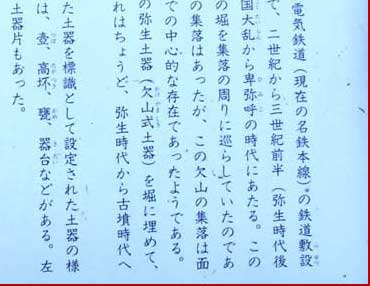 電気鉄道(現在の名鉄本線)の鉄道敷設
で、二世紀から三世紀前半(弥生時代後
国大乱から卑弥呼の時代にあたる。この
の堀を集落の周りに巡らしていたのであ
の集落はあったが、この欠山の集落は面
での中心的な存在であったようである。
の弥生土器(欠山式土器)を堀に埋めて、
れはちょうど、弥生時代から古墳時代へ
た土器を標識として設定された土器の様
は、壺、高坏、甕、器台などがある。左
土器片もあった。